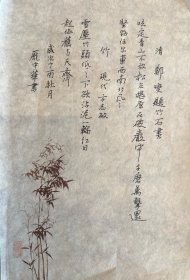 清 鄭燮題竹石畫
咬定青山不放松立根原在破巖中千磨萬擊還
堅勁任尔東西南北風
竹 現代方志敏
雪壓竹頭低低下欲沾泥一輪紅日
起依舊與天齊
丁酉 月
龐中華書